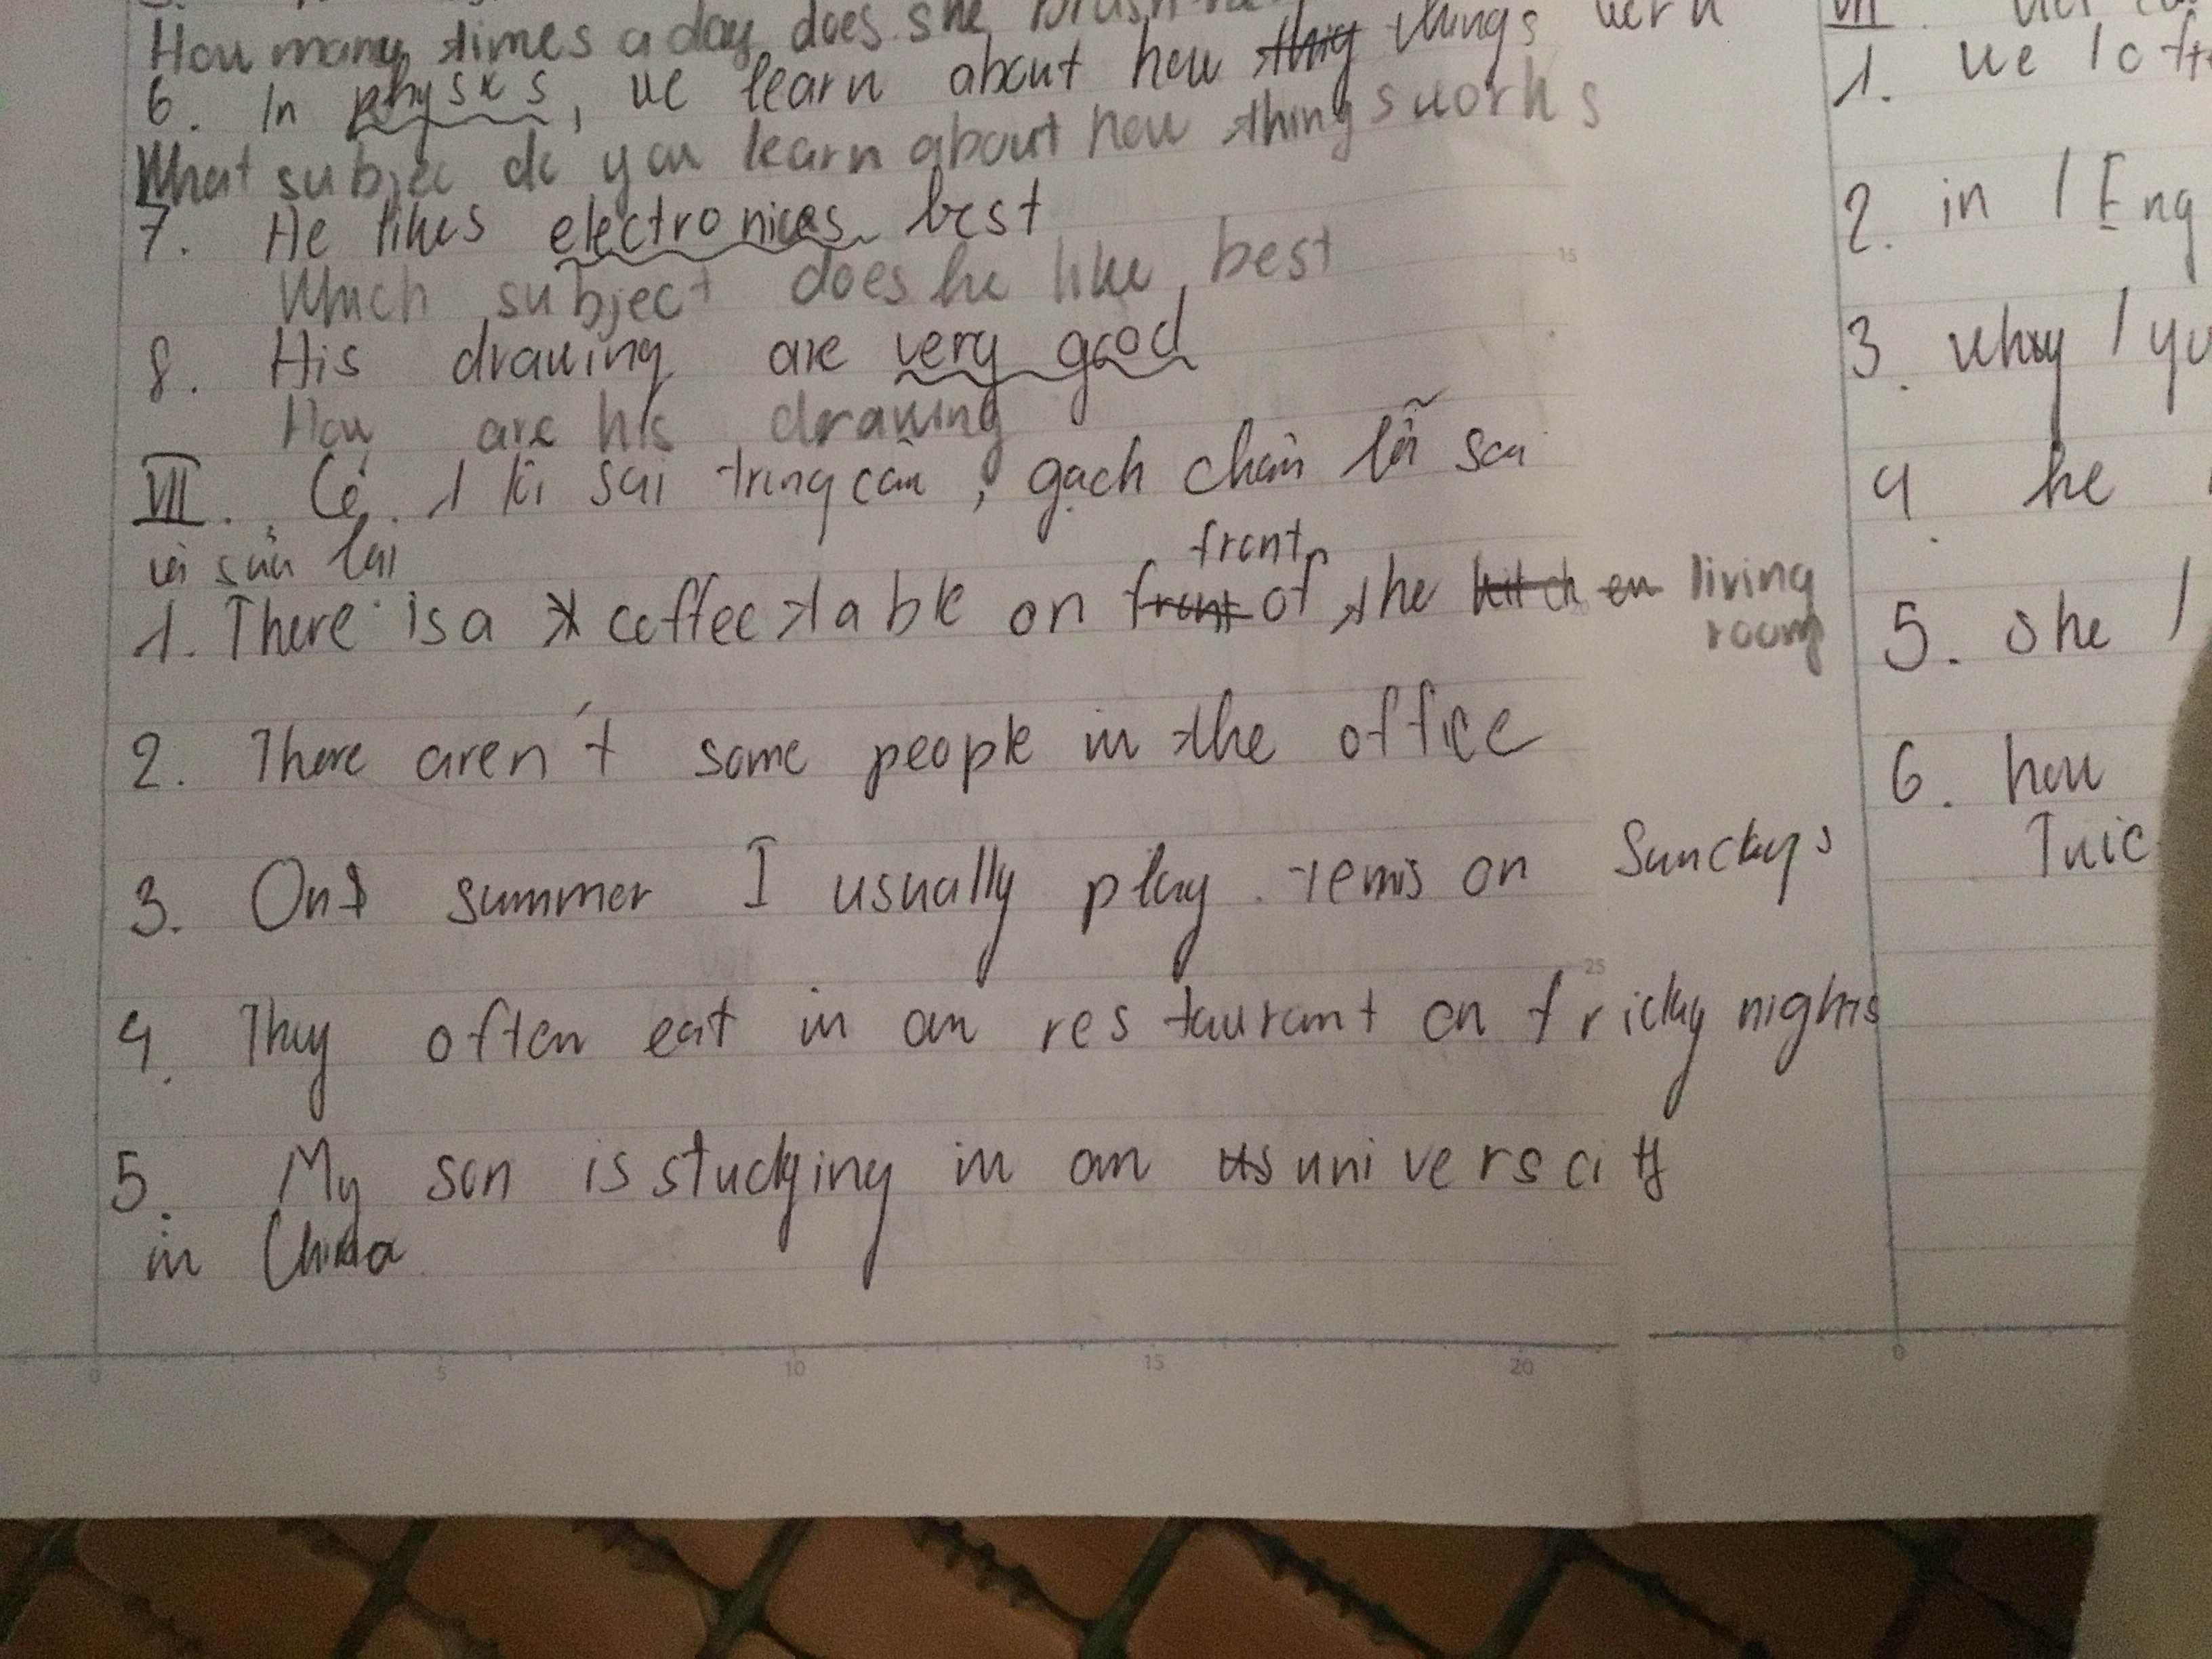 How many times a day does she brush
6. In physics, we learn about how things work
What subjec do you learn about how things works
7. He likes electronices best
Which subject does he like best
8. His drawing are very good
How are his drawing
VII. Có 1 lỗi sai trong câu, gạch chân lỗi sai
và sửa lại
1. There is a coffee table on front of the living room
2. There aren't some people in the office
3. On summer I usually play tennis on Sundays
4. They often eat in an restaurant on friday nights
5. My son is studying in an universcity
in China
VII
1. we / oft
2. in / Eng
3. why / yo
4. he
5. she /
6. how
Twic
0 5 10 15 20
15
25
0